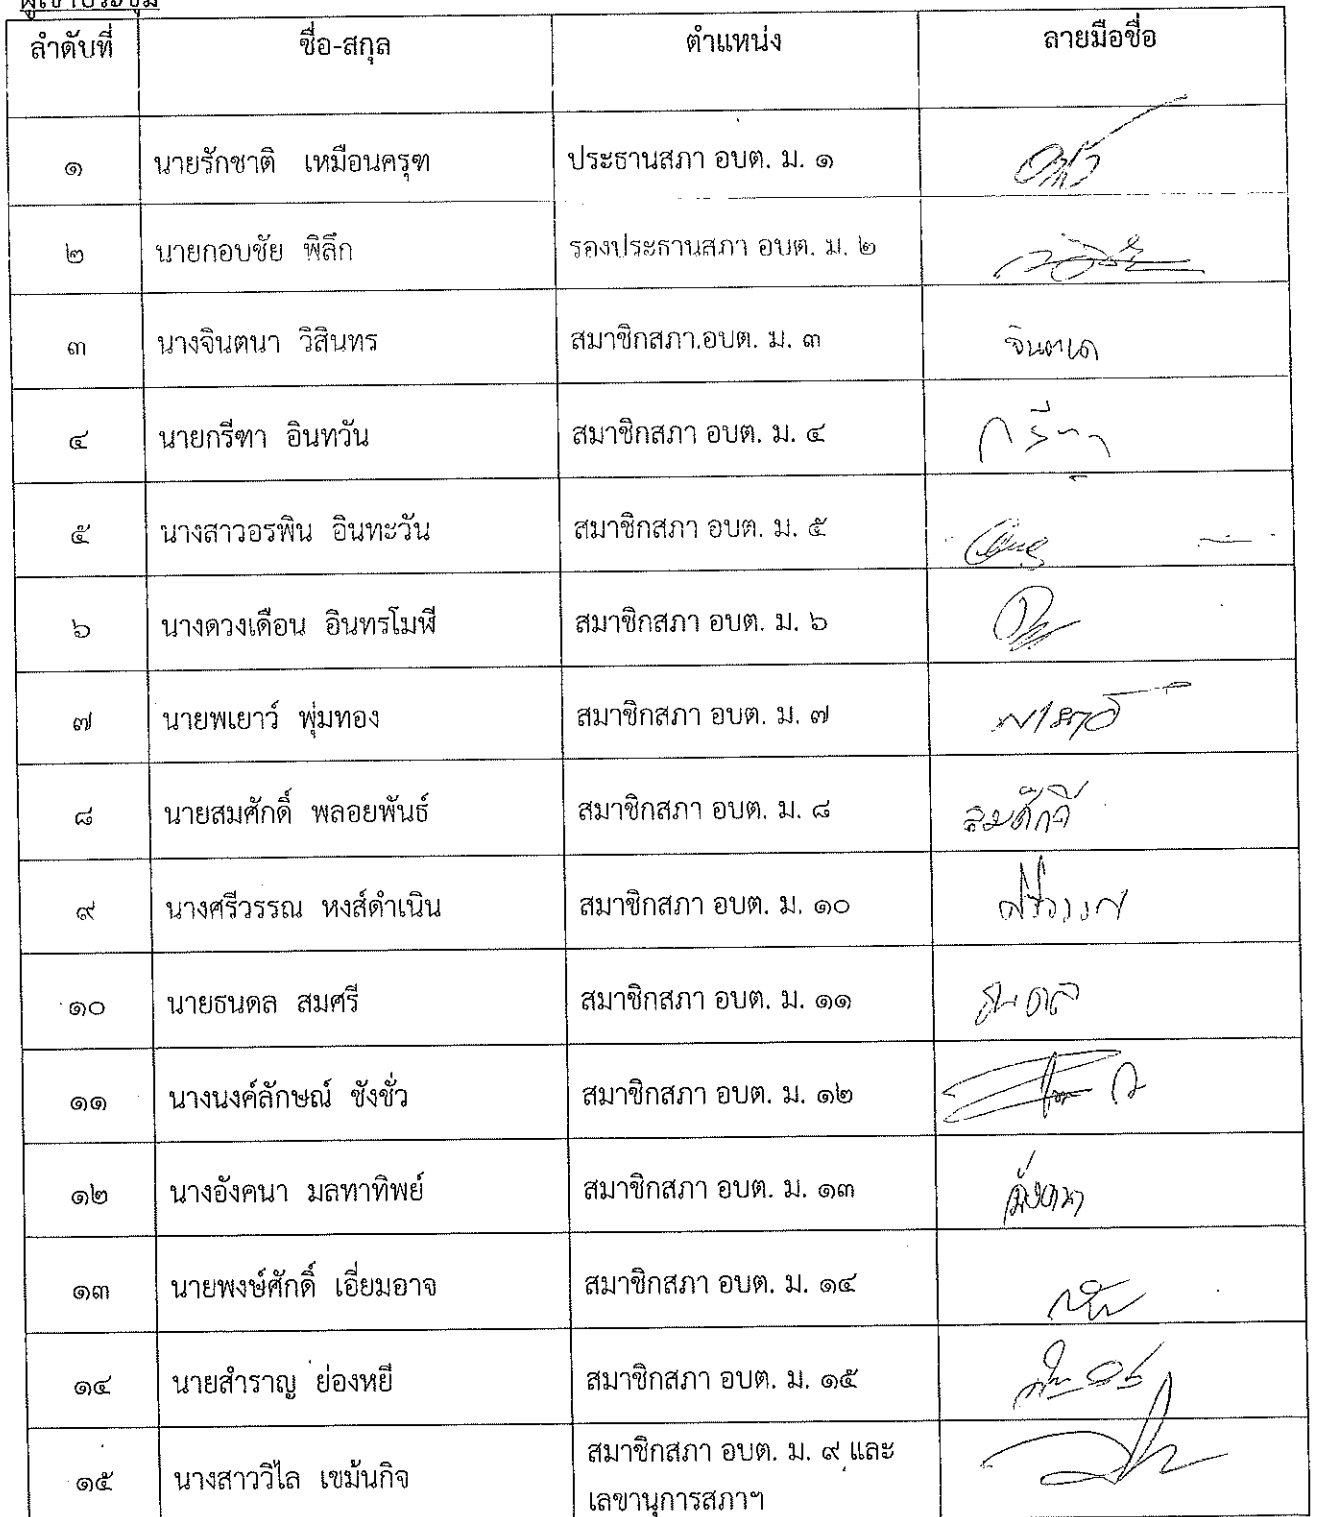 ผู้เข้าประชุม
ลำดับที่ ชื่อ-สกุล ตำแหน่ง ลายมือชื่อ
๑ นายรักชาติ เหมือนครุฑ ประธานสภา อบต. ม. ๑
๒ นายกอบชัย พิลึก รองประธานสภา อบต. ม. ๒
๓ นางจินตนา วิสินทร สมาชิกสภา.อบต. ม. ๓ จินตนา
๔ นายกรีฑา อินทวัน สมาชิกสภา อบต. ม. ๔ กรีฑา
๕ นางสาวอรพิน อินทะวัน สมาชิกสภา อบต. ม. ๕
๖ นางดวงเดือน อินทรโมฬี สมาชิกสภา อบต. ม. ๖
๗ นายพเยาว์ พุ่มทอง สมาชิกสภา อบต. ม. ๗
๘ นายสมศักดิ์ พลอยพันธ์ สมาชิกสภา อบต. ม. ๘ สมศักดิ์
๙ นางศรีวรรณ หงส์ดำเนิน สมาชิกสภา อบต. ม. ๑๐ ศรีวรรณ
๑๐ นายธนดล สมศรี สมาชิกสภา อบต. ม. ๑๑ ธนดล
๑๑ นางนงค์ลักษณ์ ชังชั่ว สมาชิกสภา อบต. ม. ๑๒
๑๒ นางอังคนา มลทาทิพย์ สมาชิกสภา อบต. ม. ๑๓ อังคนา
๑๓ นายพงษ์ศักดิ์ เอี่ยมอาจ สมาชิกสภา อบต. ม. ๑๔
๑๔ นายสำราญ ย่องหยี สมาชิกสภา อบต. ม. ๑๕
๑๕ นางสาววิไล เขม้นกิจ สมาชิกสภา อบต. ม. ๙ และ
เลขานุการสภาฯ